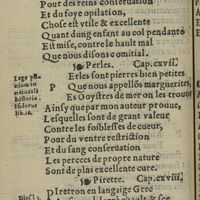 Pour des reins conseruation
Et du foye opilation,
Chose est vtile & excellente
Quant dung enfant au col pendante
Est mise, contre le hault mal
Que nous disons comitial.
Perles. Cap.cxvij.
Et les sont pierres bien petites
P Que nous appellõs marguerites,
Es Ooystres de mer on les trouue
Ainsy que par mon auteur prouue,
Lesquelles sont de grant valeur
Contre les foiblesses de cueur,
Pour du ventre restriction
Et du sang conseruation
Les percees de propre nature
Sont de plus excellente cure.
Piretre. Cap.cxviij.
PIretron en langaige Grec
Lege pli
nium in
naturali
historia.
Isidorus
lib.16.